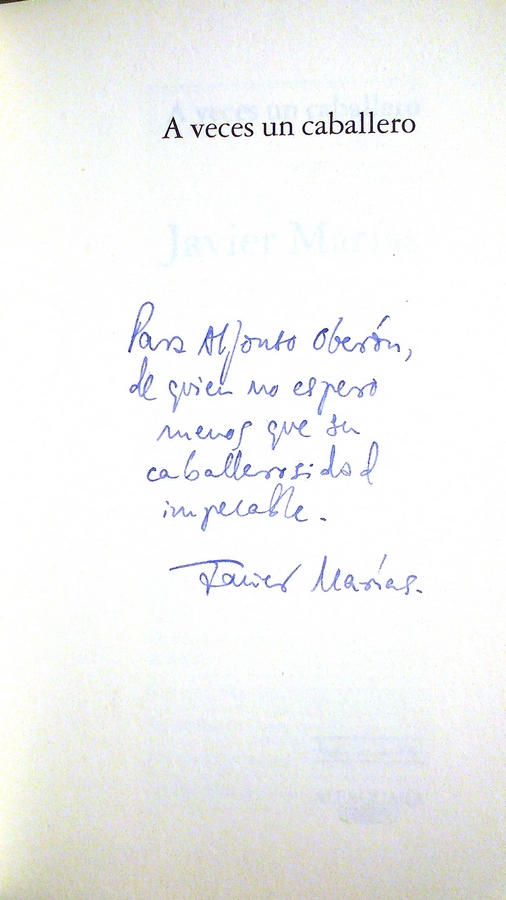 A veces un caballero
Javier Marías
Para Alfonso Oberón,
de quien no espero
menos que su
caballerosidad
impecable.
Javier Marías.